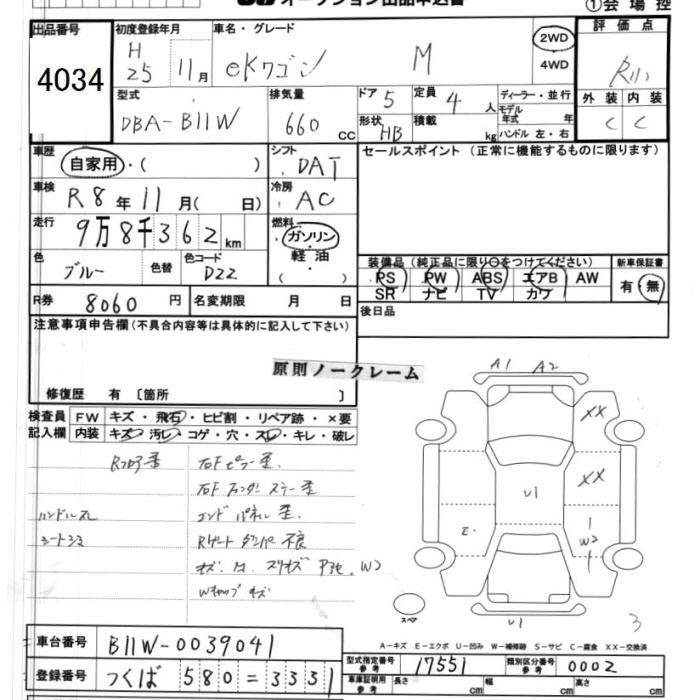 オークション出品申込書
①会場控
出品番号
4034
初度登録年月
H25 11月
車名・グレード
eKワゴン M
2WD
4WD
評価点
R
外装 内装
C C
型式
DBA-B11W
排気量
660 cc
ドア 5
定員 4 人
形状 HB
積載 kg
ディーラー・並行
モデル年式 年
ハンドル 左・右
車歴
自家用・( )
シフト
DAT
セールスポイント(正常に機能するものに限ります)
車検
R8年11月( 日)
冷房
AC
走行
9万8千362km
燃料
ガソリン
軽油
( )
色
ブルー
色替
色コード
D22
装備品(純正品に限り○をつけてください)
PS PW ABS エアB AW
SR ナビ TV カワ
新車保証書
有・無
R券 8060円
名変期限 月 日
後日品
注意事項申告欄(不具合内容等は具体的に記入して下さい)
原則ノークレーム
修復歴 有〔箇所 〕
検査員記入欄
FW キズ・飛石・ヒビ割・リペア跡・×要
内装 キズ・汚レ・コゲ・穴・スレ・キレ・破レ
ハンドルスレ
シートシミ
エンドパネル 歪.
Rゲートダンパー不良
Wキャップ キズ
A1 A2
XX
XX
U1
E.
W2
U1
3
スペア
A-キズ E-エクボ U-凹み W-補修跡 S-サビ C-腐食 XX-交換済
車台番号 B11W-0039041
登録番号 つくば 580 = 3331
型式指定番号 参考 17551
類別区分番号 参考 0002
車庫証明用 参考 長さ cm 幅 cm 高さ cm